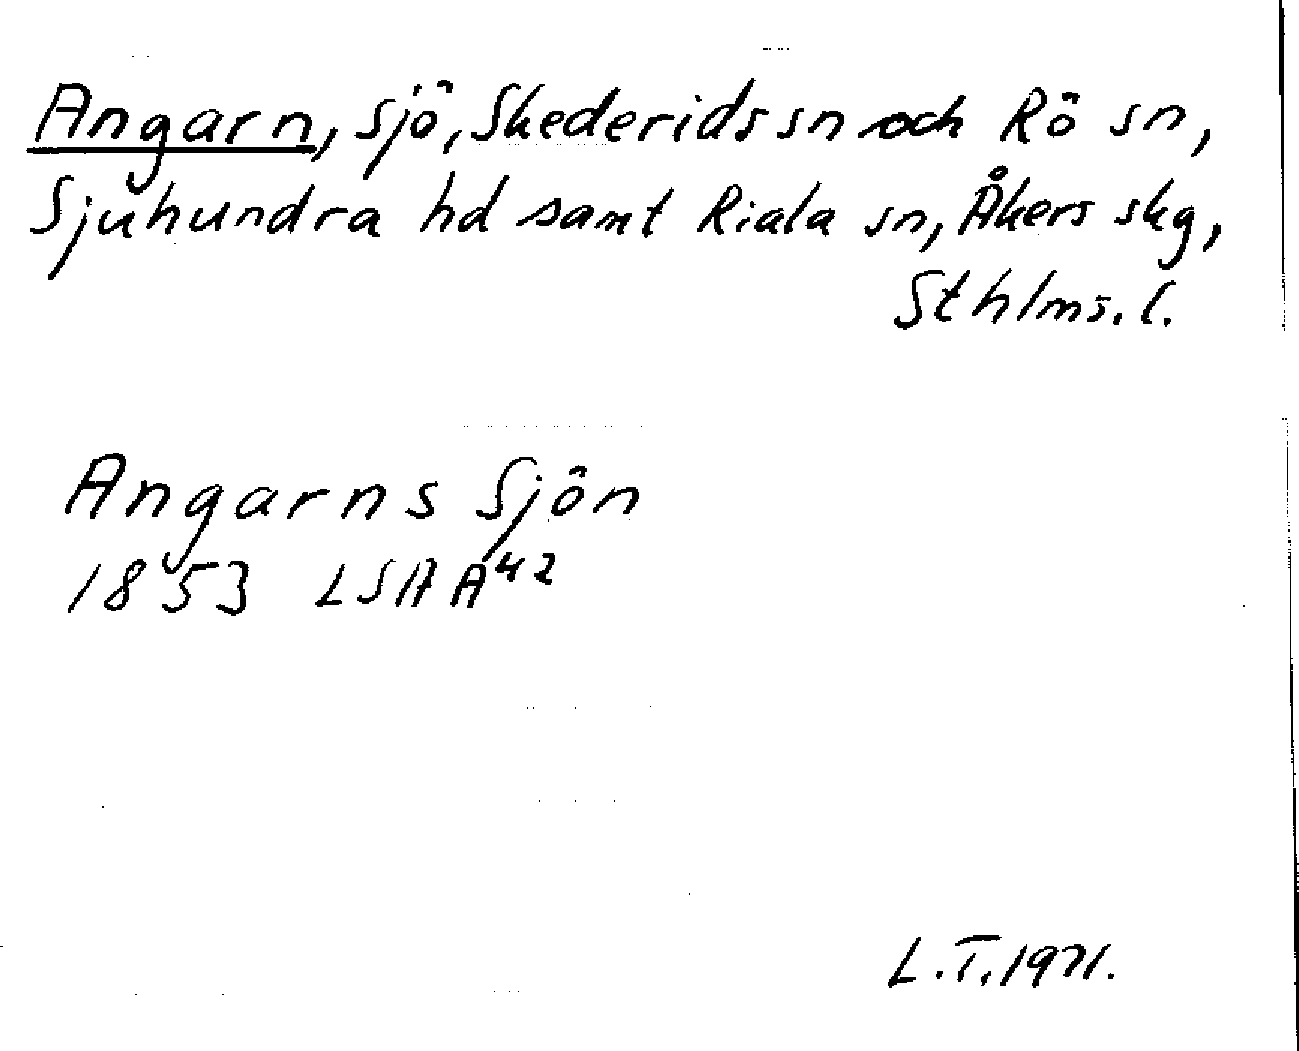 Angarn, sjö, Skederids sn och Rö sn,
Sjuhundra hd samt Riala sn, Åkers skg,
Sthlms. l.
Angarns Sjön
1853 LSA A42
L.T. 1971.